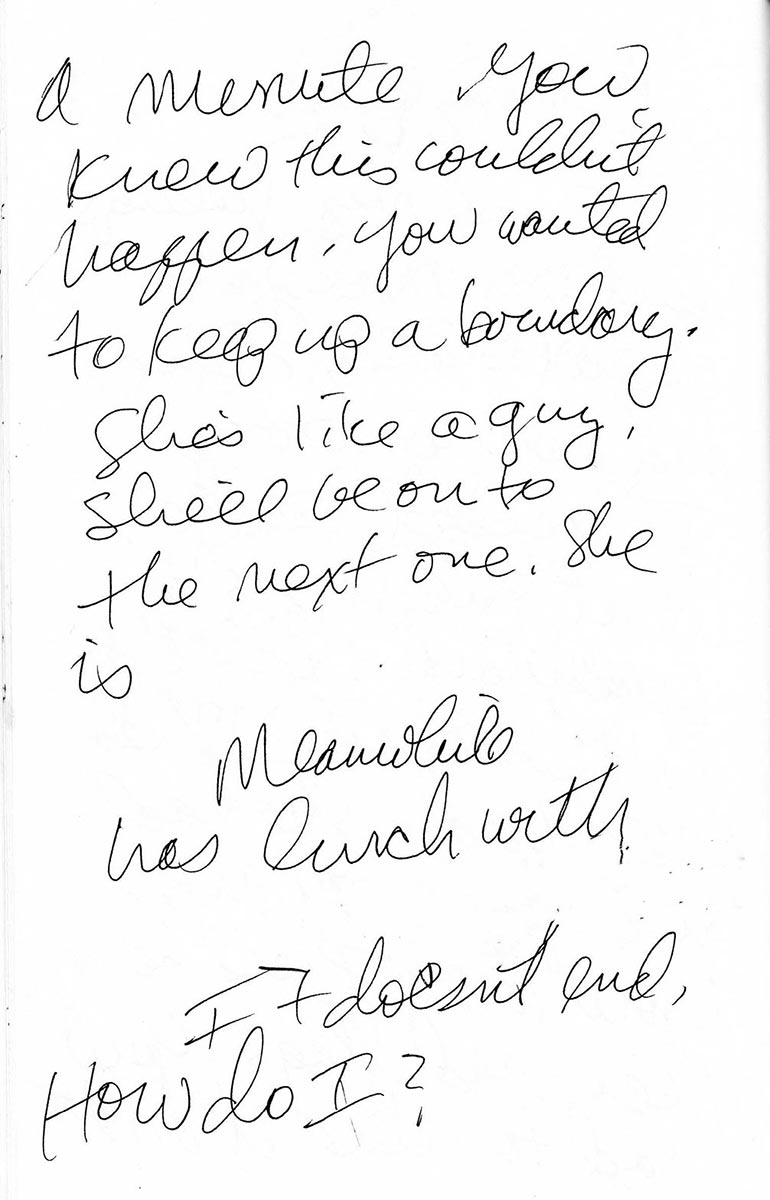 a minute you
knew this couldn't
happen. you wanted
to keep up a boundary.
She's like a guy,
she'll be on to
the next one. She
is
Meanwhile
has lunch with
It doesn't end,
How do I?